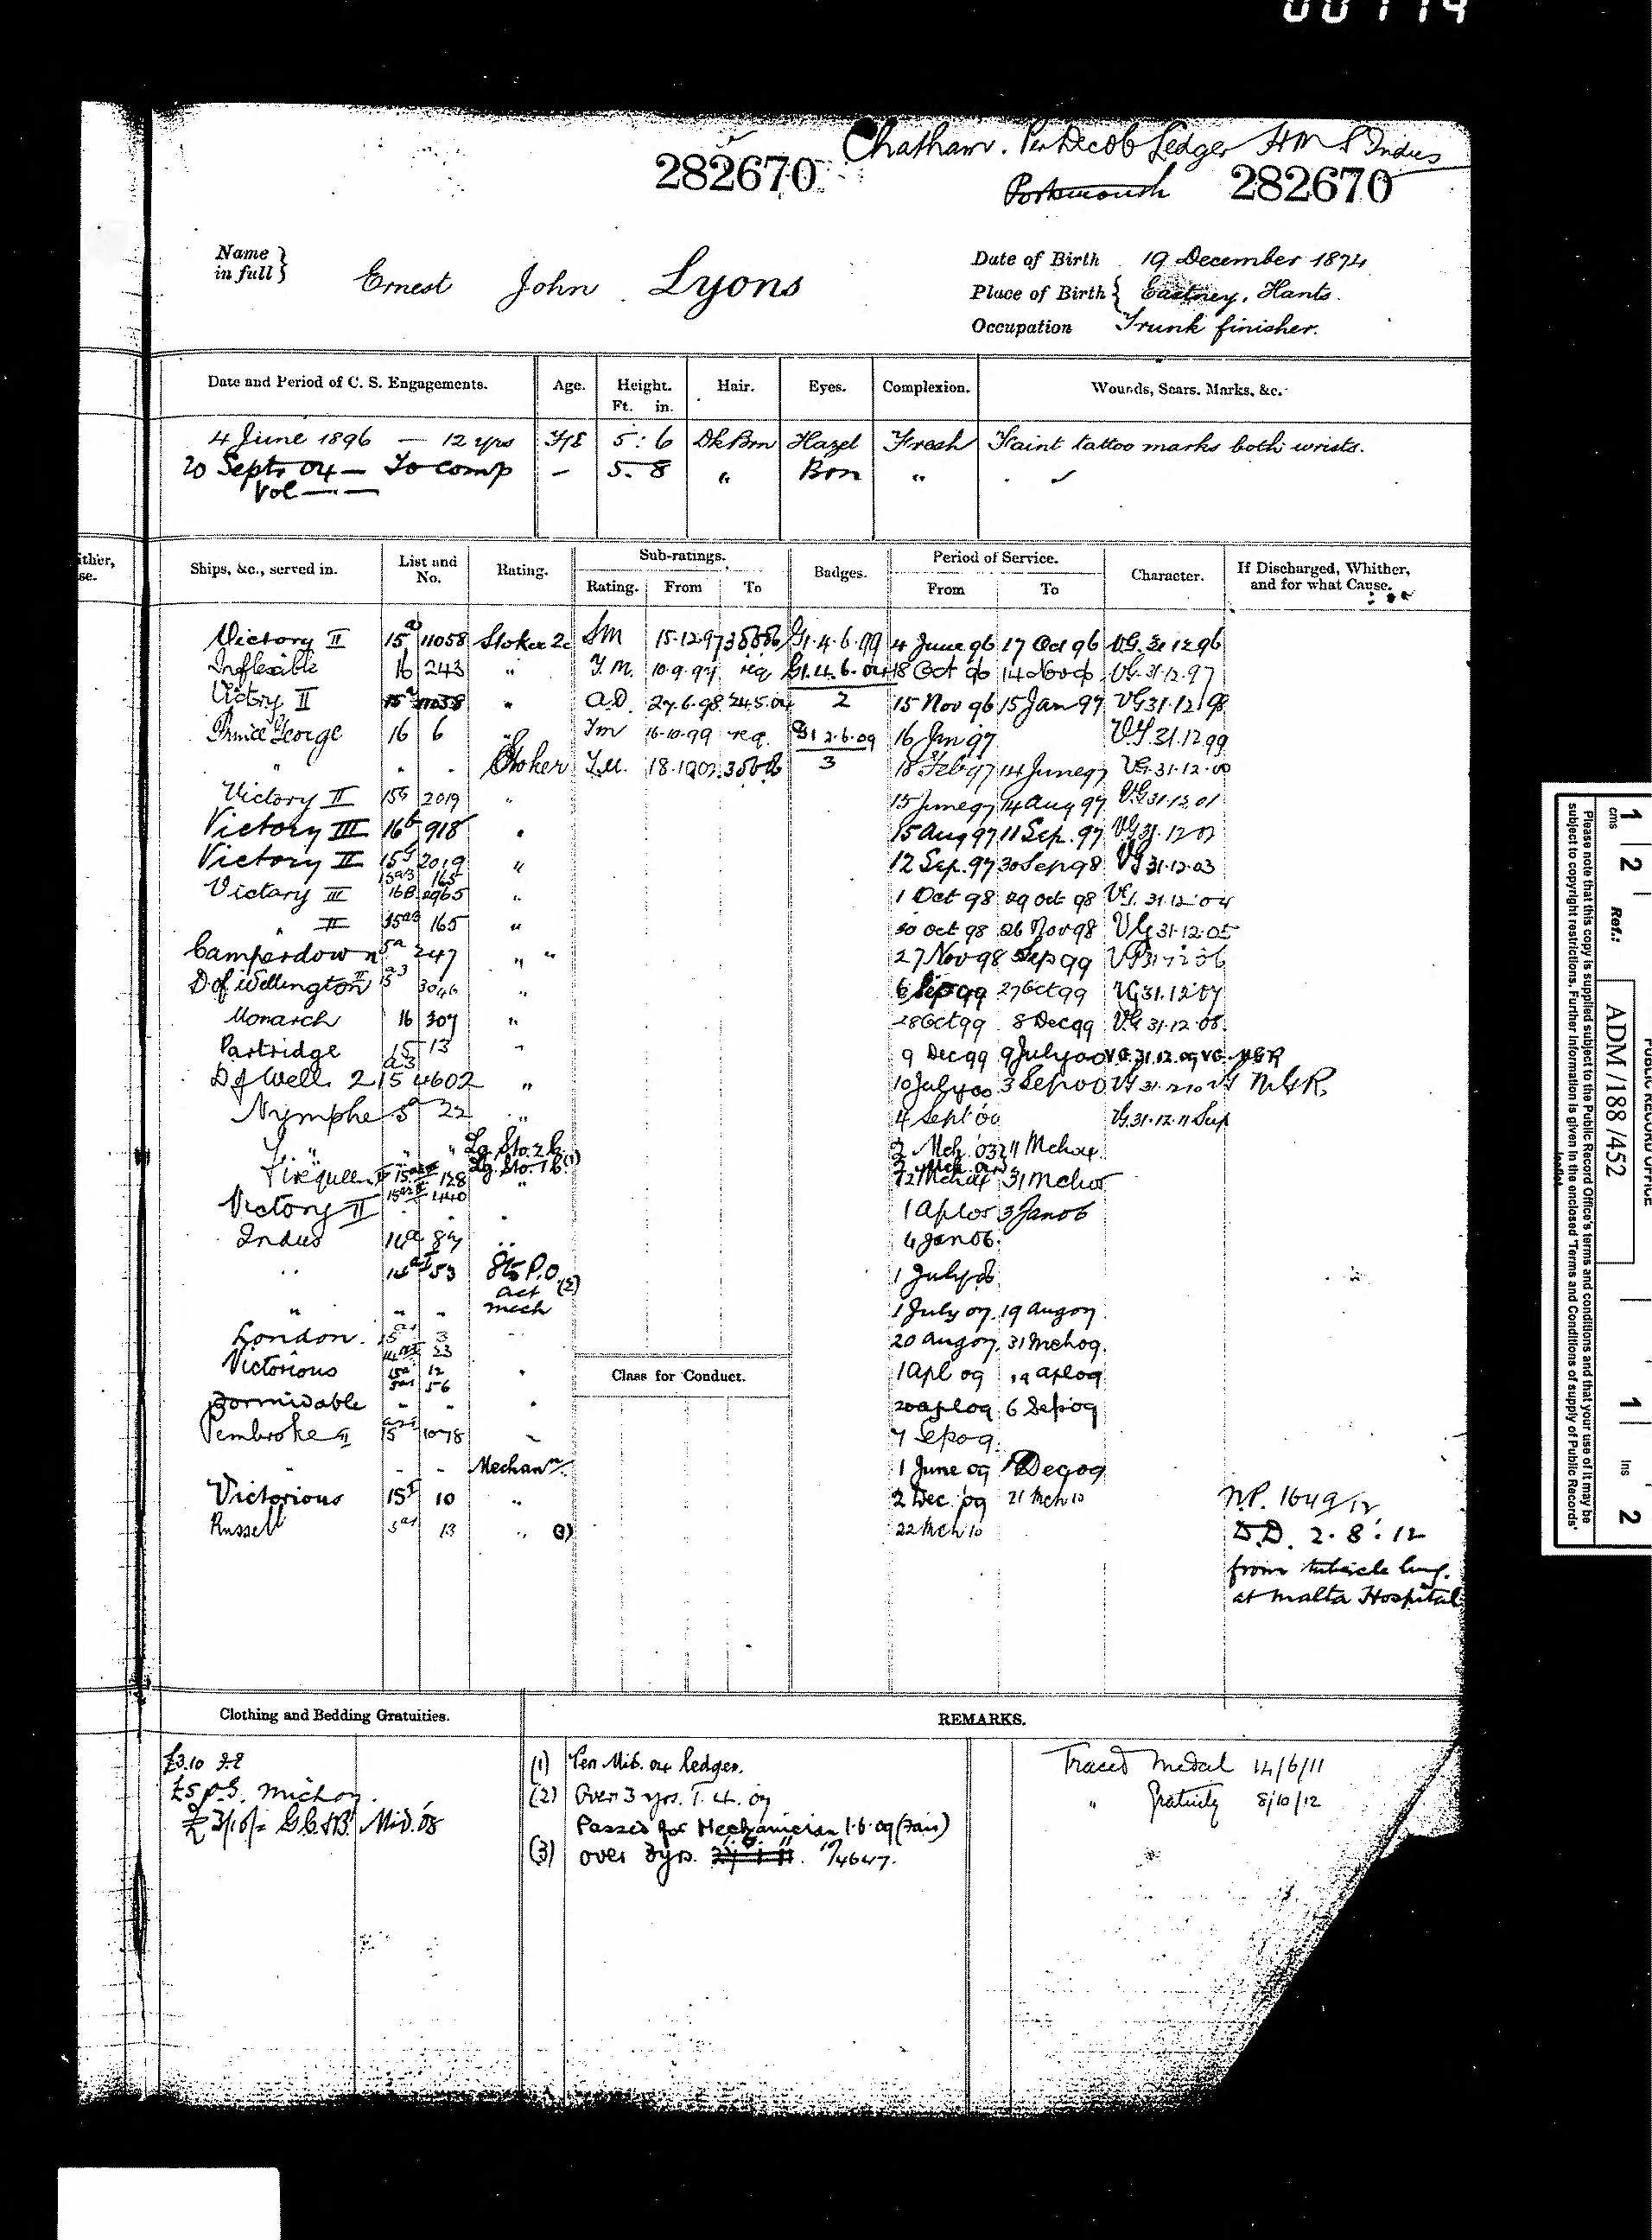 282670
Chatham. Per Dec 06 Ledger HMS Indus
Portsmouth
282670
Name in full
Ernest John Lyons
Date of Birth 19 December 1874
Place of Birth Eastney, Hants.
Occupation Trunk finisher.
Date and Period of C. S. Engagements. Age. Height. Ft. in. Hair. Eyes. Complexion. Wounds, Scars. Marks, &c.
4 June 1896 — 12 yrs 5:6 Dk Brn Hazel Fresh Faint tattoo marks both wrists.
20 Septr 04 — To comp — 5.8 " Brn "
Vol —
Ships, &c., served in. List and No. Rating. Sub-ratings. Rating. From To Badges. Period of Service. From To Character. If Discharged, Whither, and for what Cause.
Victory II 15 11058 Stoker 2c SM 15.12.97 G1.4.6.99 4 June 96 17 Oct 96 VG. 31.12.96
Inflexible 16 243 " T.M. 10.9.97 req G1.4.6.04 18 Oct 96 14 Nov 96 VG. 31.12.97
Victory II 15 11058 " A.D. 27.6.98 24.5.04 2 15 Nov 96 15 Jan 97 VG 31.12.98
Prince George 16 6 " Tm 16.10.99 req. G1 2.6.09 16 Jan 97 VG. 31.12.99
" " " Stoker 18.10.02 3 18 Feb 97 14 June 97 VG. 31.12.00
Victory II 15 2019 " 15 June 97 14 Aug 97 VG 31.12.01
Victory III 16 918 " 15 Aug 97 11 Sep. 97 VG 31.12.02
Victory II 15 2019 " 12 Sep. 97 30 Sep 98 VG 31.12.03
165
Victory III 16B 2965 " 1 Oct 98 29 Oct 98 VG. 31.12.04
" II 165 " 30 Oct 98 26 Nov 98 VG 31.12.05
Camperdown 5a 247 " " 27 Nov 98 Sep 99 VG 31.12.06
D. of Wellington II 15 3046 " 6 Sep 99 27 Oct 99 VG 31.12.07
Monarch 16 307 " 28 Oct 99 8 Dec 99 VG 31.12.08.
Partridge 15 13 " 9 Dec 99 9 July 00 VG. 31.12.09 VG. MGR
D of Well. 2 15 4602 " 10 July 00 3 Sep 00 VG 31.12.10 VG MGR.
Nymphe 5a 22 " 4 Sept 00 VG. 31.12.11 Sup
" " " Lg. Sto. 2 2 Mch. 03 11 Mch 04
Firequeen II 15 128 Lg. Sto. 1 (1) 12 Mch 04 31 Mch 05
Victory II 15 440 " 1 Apl 05 3 Jan 06
Indus 14a 87 " 4 Jan 06.
" 53 Sto P.O. 1 July 06
" " " Act (2) mech 1 July 07. 19 Aug 07.
London. 15 3 " 20 Aug 07. 31 Mch 09.
23
Class for Conduct.
Victorious 12 " 1 Apl 09 19 Apl 09
56
Formidable " " " 20 Apl 09 6 Sep 09
Pembroke II 15 1078 " 7 Sep 09.
" " " Mechann. 1 June 09 1 Dec 09
Victorious 15 10 " 2 Dec. 09 21 Mch 10
Russell 5 13 " (3) 22 Mch 10
N.P. 1649/12
D.D. 2.8.12
from tubercle lung.
at Malta Hospital
Clothing and Bedding Gratuities.
REMARKS.
£3.10
£5
£3/10/= Mid. 08
(1) Per Mids. 04 ledger.
(2) Over 3 yrs. 1. 4. 07
Passed for Mechanician 1.6.09 (Fair)
(3) over 3 yrs.
Traced Medal 14/6/11
" Gratuity 8/10/12
PUBLIC RECORD OFFICE
1 2 cms
Ref.: ADM/188/452
1 ins 2
Please note that this copy is supplied subject to the Public Record Office's terms and conditions and that your use of it may be
subject to copyright restrictions. Further information is given in the enclosed 'Terms and Conditions of supply of Public Records'
leaflet